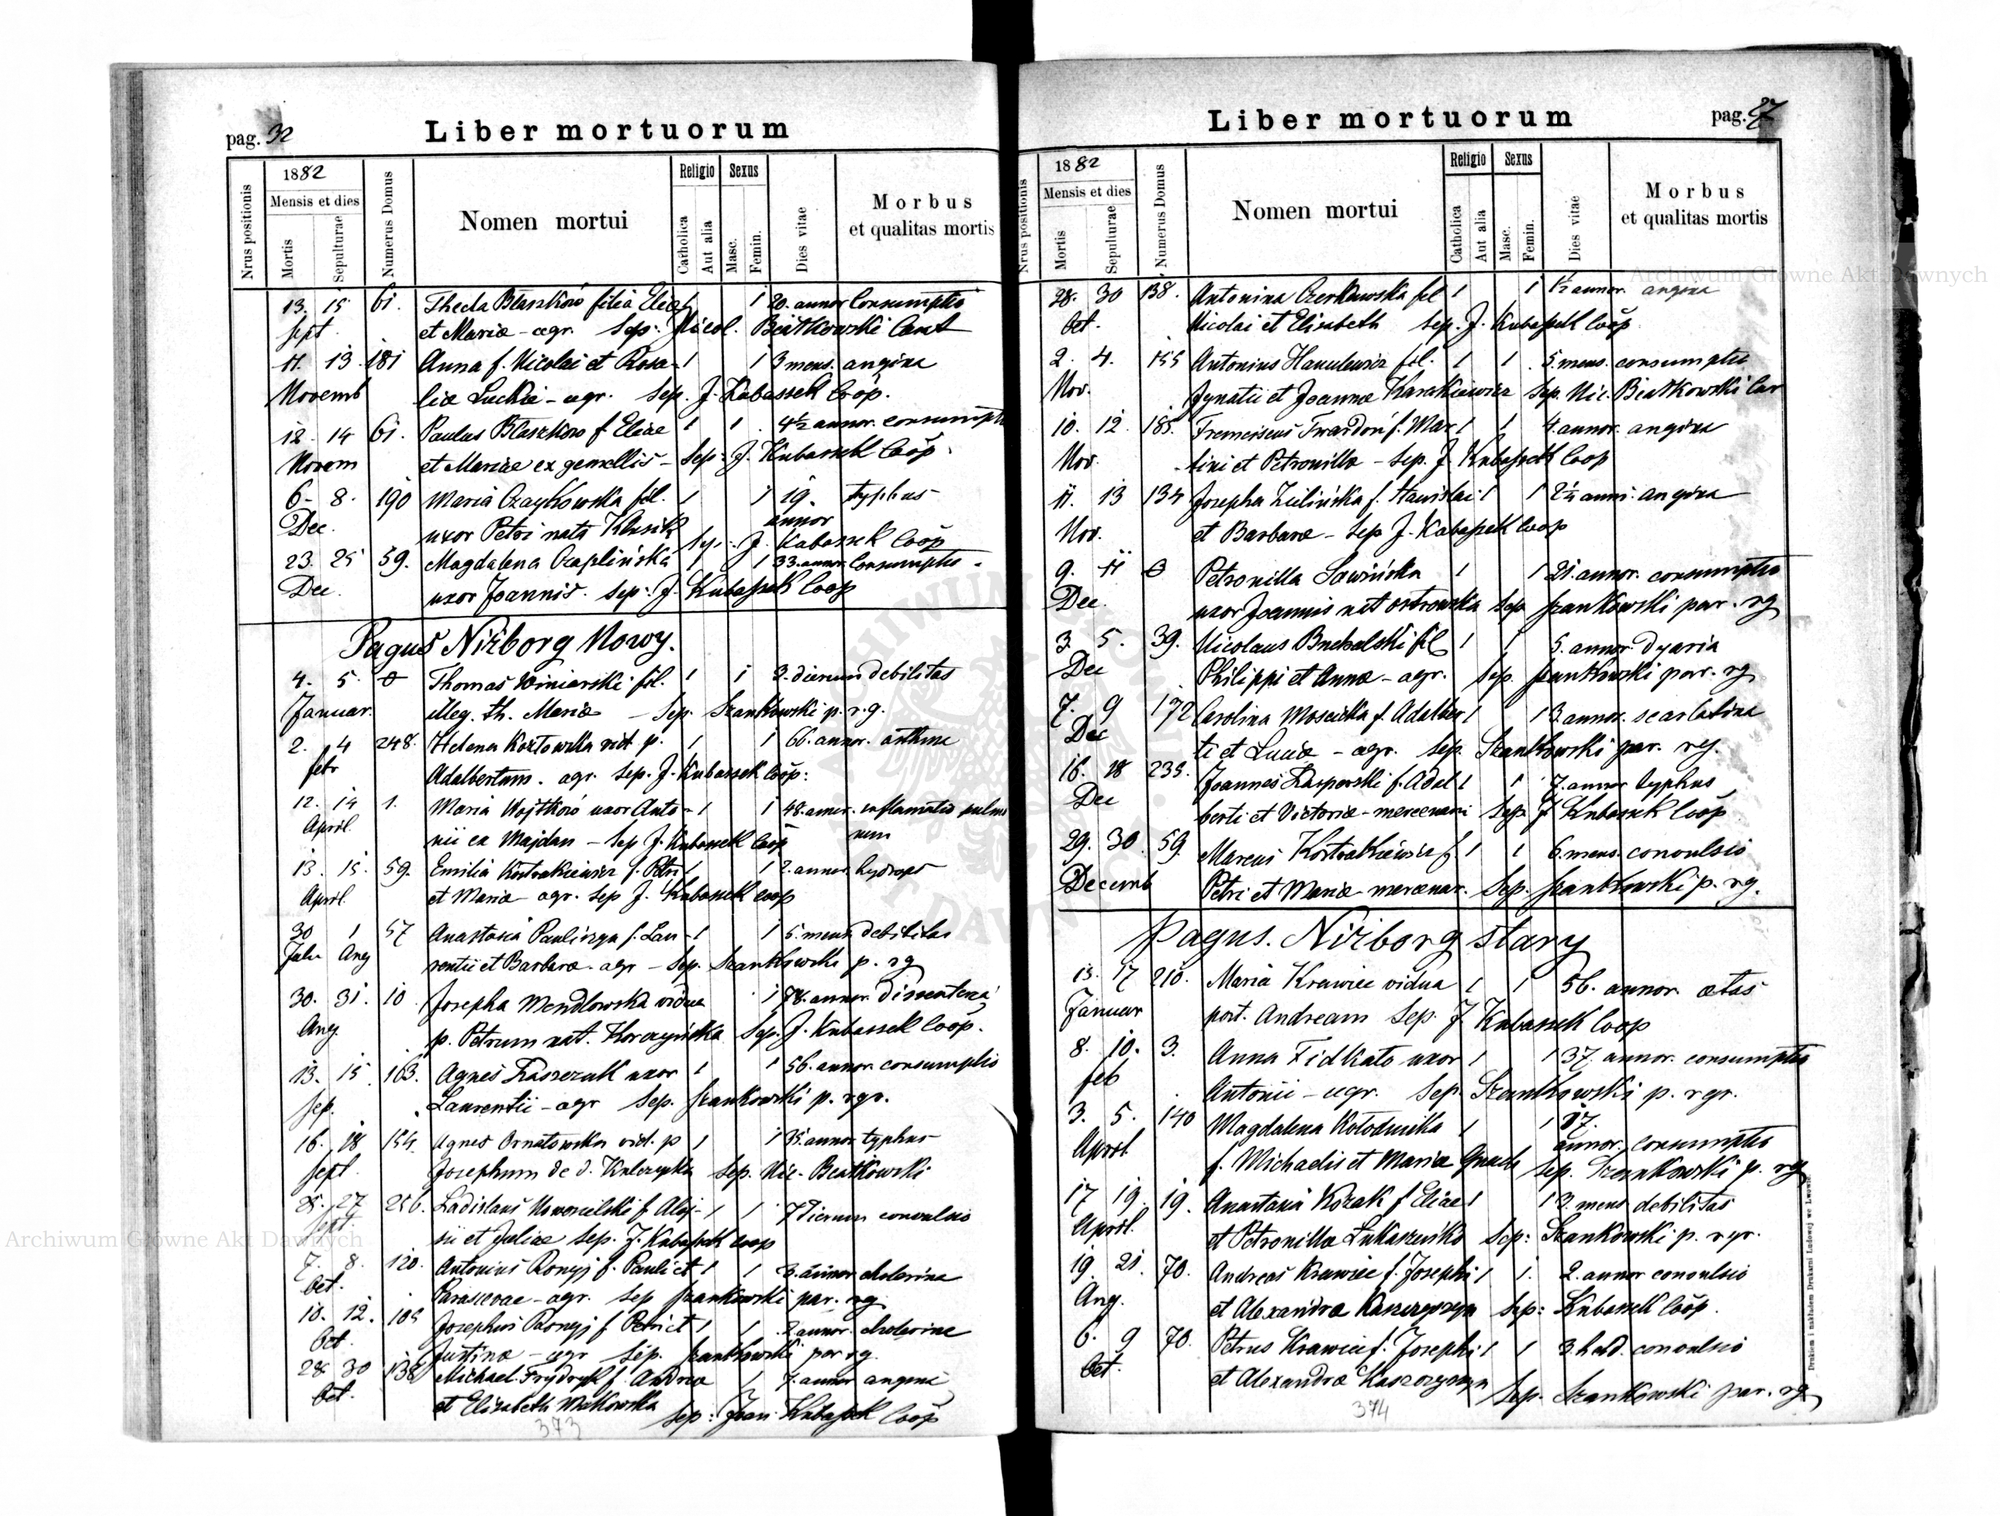 pag. 32
Liber mortuorum
Nrus positionis
1882
Mensis et dies
Mortis
Sepulturae
Numerus Domus
Nomen mortui
Religio
Catholica
Aut alia
Sexus
Masc.
Femin.
Dies vitae
Morbus
et qualitas mortis
13. 15 61. Thecla Błaszków filia Eliae 1 1 20. annor consumptio
Sept et Mariae - agr. Sep. Nicol. Beatkowski
11. 13 181 Anna f. Nicolai et Rosa- 1 1 3 mens. angina
Novemb liae - agr. Sep. J. Kubassek Coop.
12. 14 61. Paulus Błaszków f. Eliae 1 1 4½ annor. consumpt
Novem et Mariae ex gemellis - Sep: J. Kubassek Coop.
6. 8. 190 Maria Czaykowska fil. 1 1 19. typhus
annor
Dec. uxor Petri nata Sep: J. Kubassek Coop
23. 25 59. Magdalena Czaplińska 1 1 33. annor. consumptio
Dec. uxor Joannis. Sep: J. Kubassek Coop
Pagus Niżborg Nowy.
4. 5. 0 Thomas Winiarski fil. 1 1 3. dierum debilitas
Januar. illeg. th. Mariae - Sep. Szankowski p. r. g.
2. 4 248. Helena Kozłowska vid. p. 1 1 66. annor. asthma
febr Adalbertum. agr. Sep. J. Kubassek Coop:
12. 14 1. Maria Wojtków uxor Anto- 1 1 48. annor. inflamatio pulmo
num
April. nii ex Majdan - Sep J. Kubassek Coop
13. 15. 59. Emilia Kostrakiewicz f. Petri 1 1 2. annor. hydrops
April. et Mariae agr. Sep J. Kubassek Coop
30 1 57 Anastasia f. Lau- 1 1 5. mens. debilitas
Julii Aug rentii et Barbarae - agr - Sep. Szankowski p. rg
30. 31. 10 Josepha Mendlowska vidua 1 78. annor.
Aug. p. Petrum nat. Korczyńska Sep. J. Kubassek Coop.
13. 15 163. Agnes Kaszczuk uxor 1 1 56. annor consumptio
Sep. Laurentii - agr Sep. Szankowski p. rgr.
16. 18 154. Agnes Ornatowska vid. p 1 1 35. annor typhus
Sept. Josephum de d. Kulczycka Sep. Nic. Beatkowski
25. 27 256. Ladislaus f. Aloj- 1 1 7 dierum convulsio
Sept. sii et Juliae Sep. J. Kubassek Coop
7. 8. 120. Antonius Ronyj f. Pauli et 1 1 3. annor cholerina
Oct. Parascevae - agr. Sep Szankowski par. rg
10. 12. 105 Josephus Ronyj f. Petri et 1 1 2 annor. cholerine
Oct. Justinae - agr Sep. Szankowski par rg.
28 30 138 Michael Frydryk f. Andrea 1 7. annor angina
Oct. et Elisabeth Makowska Sep: Joan Kubassek Coop
373
pag. 27
Liber mortuorum
Nrus positionis
1882
Mensis et dies
Mortis
Sepulturae
Numerus Domus
Nomen mortui
Religio
Catholica
Aut alia
Sexus
Masc.
Femin.
Dies vitae
Morbus
et qualitas mortis
28. 30 138. Antonina Czerkawska fil 1 1 ½ annor. angina
Oct. Nicolai et Elisabeth Sep. J. Kubassek Coop
2. 4. 155 Antonius Hanulewicz fil. 1 1 5. mens. consumptio
Nov. Ignatii et Joannae Karakiewicz Sep. Nic. Beatkowski
10. 12. 185. Franciscus Twardoń f. Mar 1 1 4. annor. angina
Nov. tini et Petronilla - Sep. J. Kubassek Coop
11. 13 134 Josepha Zielińska f. Stanislai 1 1 2½ anni. angina
Nov. et Barbarae - Sep J. Kubassek Coop
9. 11 0 Petronilla Sawińska 1 1 21. annor. consumptio
Dec. uxor Joannis nat Ostrowska Sep Szankowski par. rg
3. 5. 39. Nicolaus Buchalski fil 1 1 5. annor. dyaria
Dec Philippi et Annae - agr. Sep. Szankowski par. rg
7. 9 172 Carolina Moscicka f. Adalber 1 1 3. annor. scarlatina
Dec ti et Luciae - agr. Sep. Szankowski par. reg.
16. 18 235. Joannes Kasperski f. Adal 1 1 7. annor typhus
Dec berti et Victoriae - mercenarii Sep. J Kubassek Coop
29. 30. 59. Marcus Kostrakiewicz f. 1 1 6. mens. convulsio
Decemb Petri et Mariae mercenar. Sep. Szankowski p. rg.
Pagus. Niżborg stary
15. 17 210. Maria Krawiec vidua 1 1 56. annor. aetas
Januar post. Andream Sep. J. Kubassek Coop
8. 10. 3. Anna Fidkato uxor 1 1 37. annor. consumptio
feb Antonii - agr. Sep. Szankowski p. rgr.
3. 5. 140 Magdalena Kołodnicka 1 1 87.
annor. consumptio
April f. Michaelis et Mariae Sep. Szankowski p. rg
17 19. 19. Anastasia Kozak f. Eliae 1 1 3. mens debilitas
April. et Petronillae Łukaszewska Sep: Szankowski p. rgr.
19. 21. 70. Andreas Krawiec f. Josephi 1 1. 2. annor convulsio
Aug. et Alexandrae Kaszczyszyn Sep: Kubassek Coop.
6. 9 70. Petrus Krawiec f. Josephi 1 1 3. hebd. convulsio
Oct. et Alexandrae Kaszczyszyn Sep. Szankowski par. rg
374
Drukiem i nakładem Drukarni Ludowej we Lwowie.
Archiwum Główne Akt Dawnych
Archiwum Główne Akt Dawnych
ARCHIWUM GŁÓWNE AKT DAWNYCH